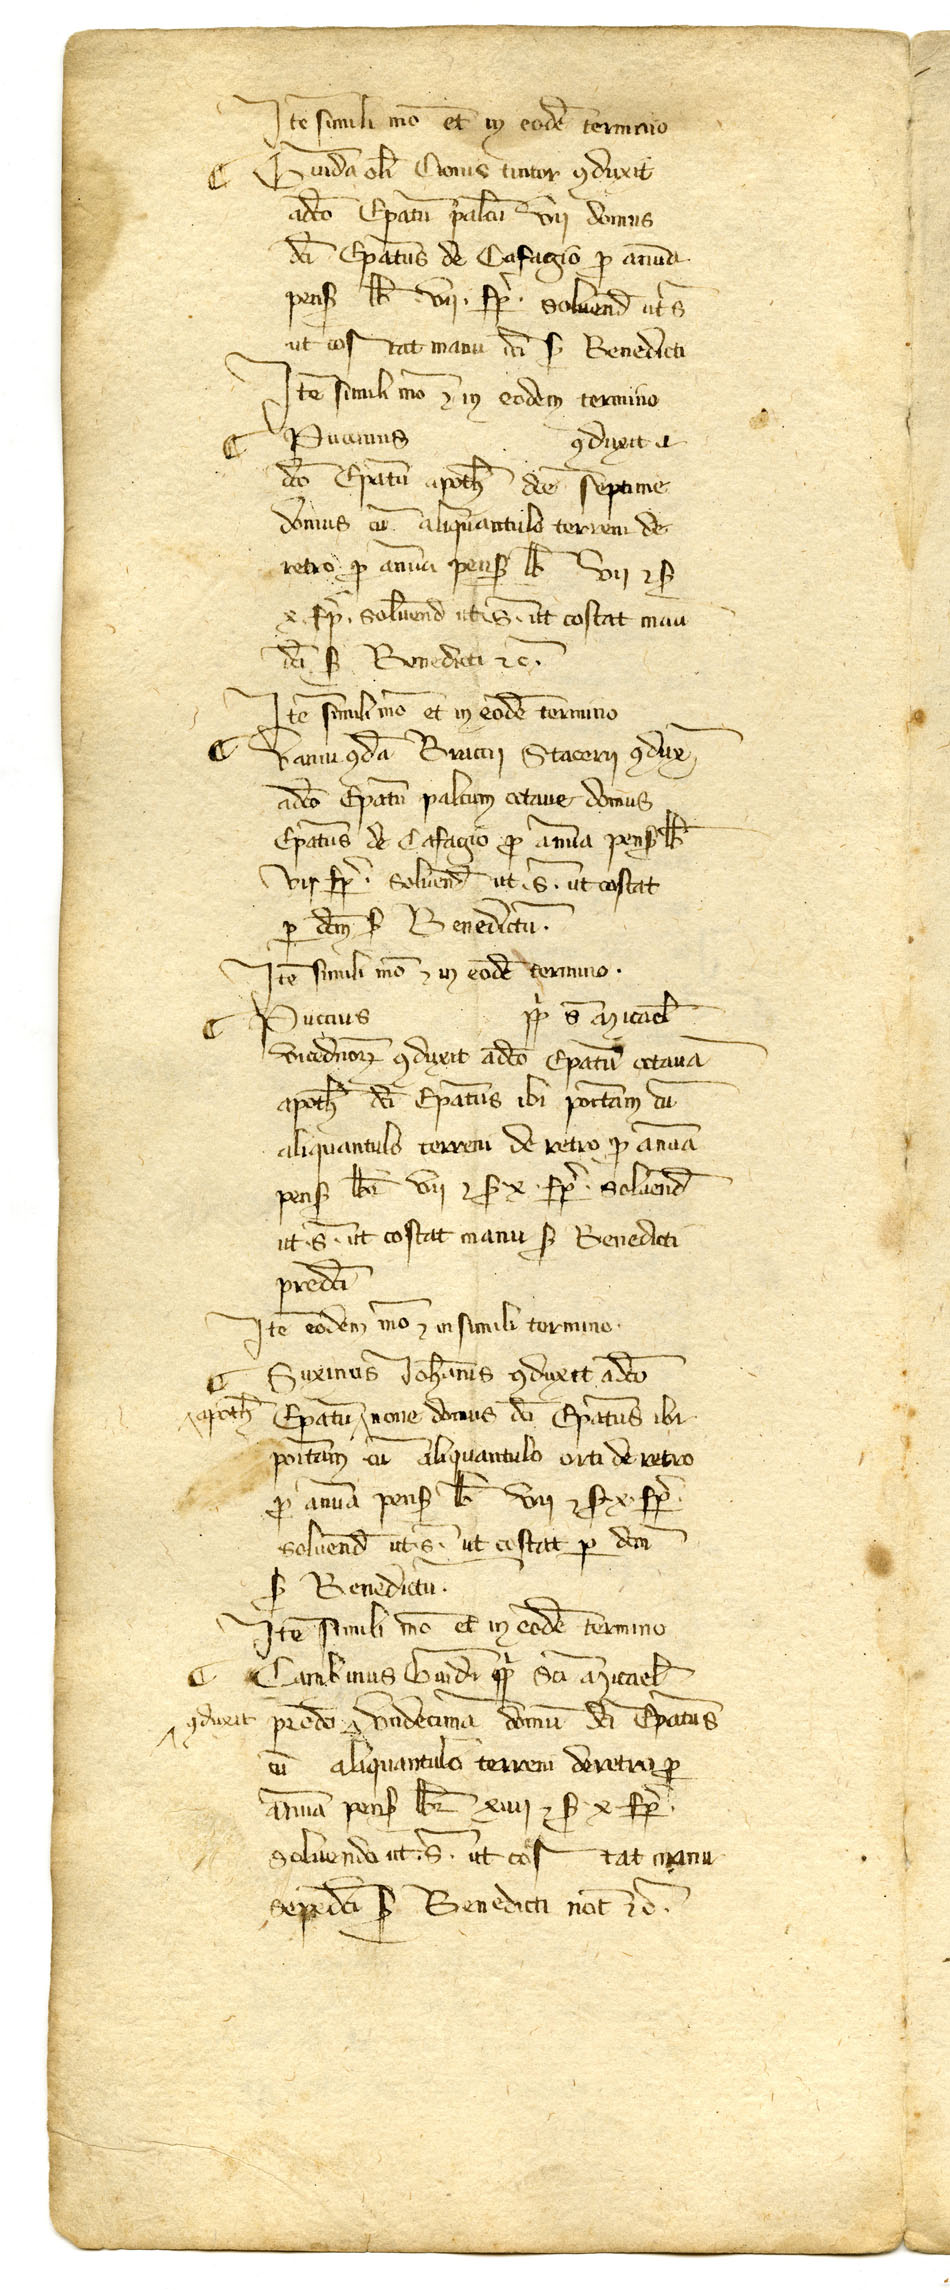 Itē simili mō et in eodē termino
Guida olī Cionis tintor 9duxit
adcō Epatū palcū VII domus
dcī Epatus de Cafagio p anua
pens lb VII. fp. soluend ut s
ut cos tat manu dcī s Benedicti
Itē simili mō 7 in eodem termino
Puccinus 9duxit a
dcō Epatū apoth dcē septime
domus cū aliquantulo terreni de
retro p anua pens lb VII 7 s
x. fp. soluend ut. s. ut costat manu
dcī s Benedicti 7c.
Itē simili mō et in eodē termino
Vanni 9dā Bruccij 9dux
adcō Epatū palcum octaue domus
Epatus de Cafagio p anua pens lb
VII fp. soluend ut. s. ut costat
p dcm s Benedictū.
Itē simili mō 7 in eodē termino.
Puccius pp s Micael
vicednor 9duxit adcō Epatū octauā
apoth dcī Epatus ibi portam cū
aliquantulo terreni de retro p anua
pens lbr VII 7 s x. fp. soluend
ut. s. ut costat manu s Benedicti
predcī
Itē eodem mō 7 in simili termino.
Johanis 9duxit adcō
apoth Epatū none domus dcī Epatus ibi
portam cū aliquantulo orti de retro
p anua pens lb VII 7 s x. fp.
soluend ut. s. ut costat p dcm
s Benedictū.
Itē simili mō et in eodē termino
Cambinus Guidi pp scī Micael
9duxit predcō undecimā domū dcī Epatus
cū aliquantulo terreni de retro p
anua pens lbr XIIII 7 s x fp.
soluendo ut. s. ut cos tat manu
sepedcī s Benedicti not 7c.